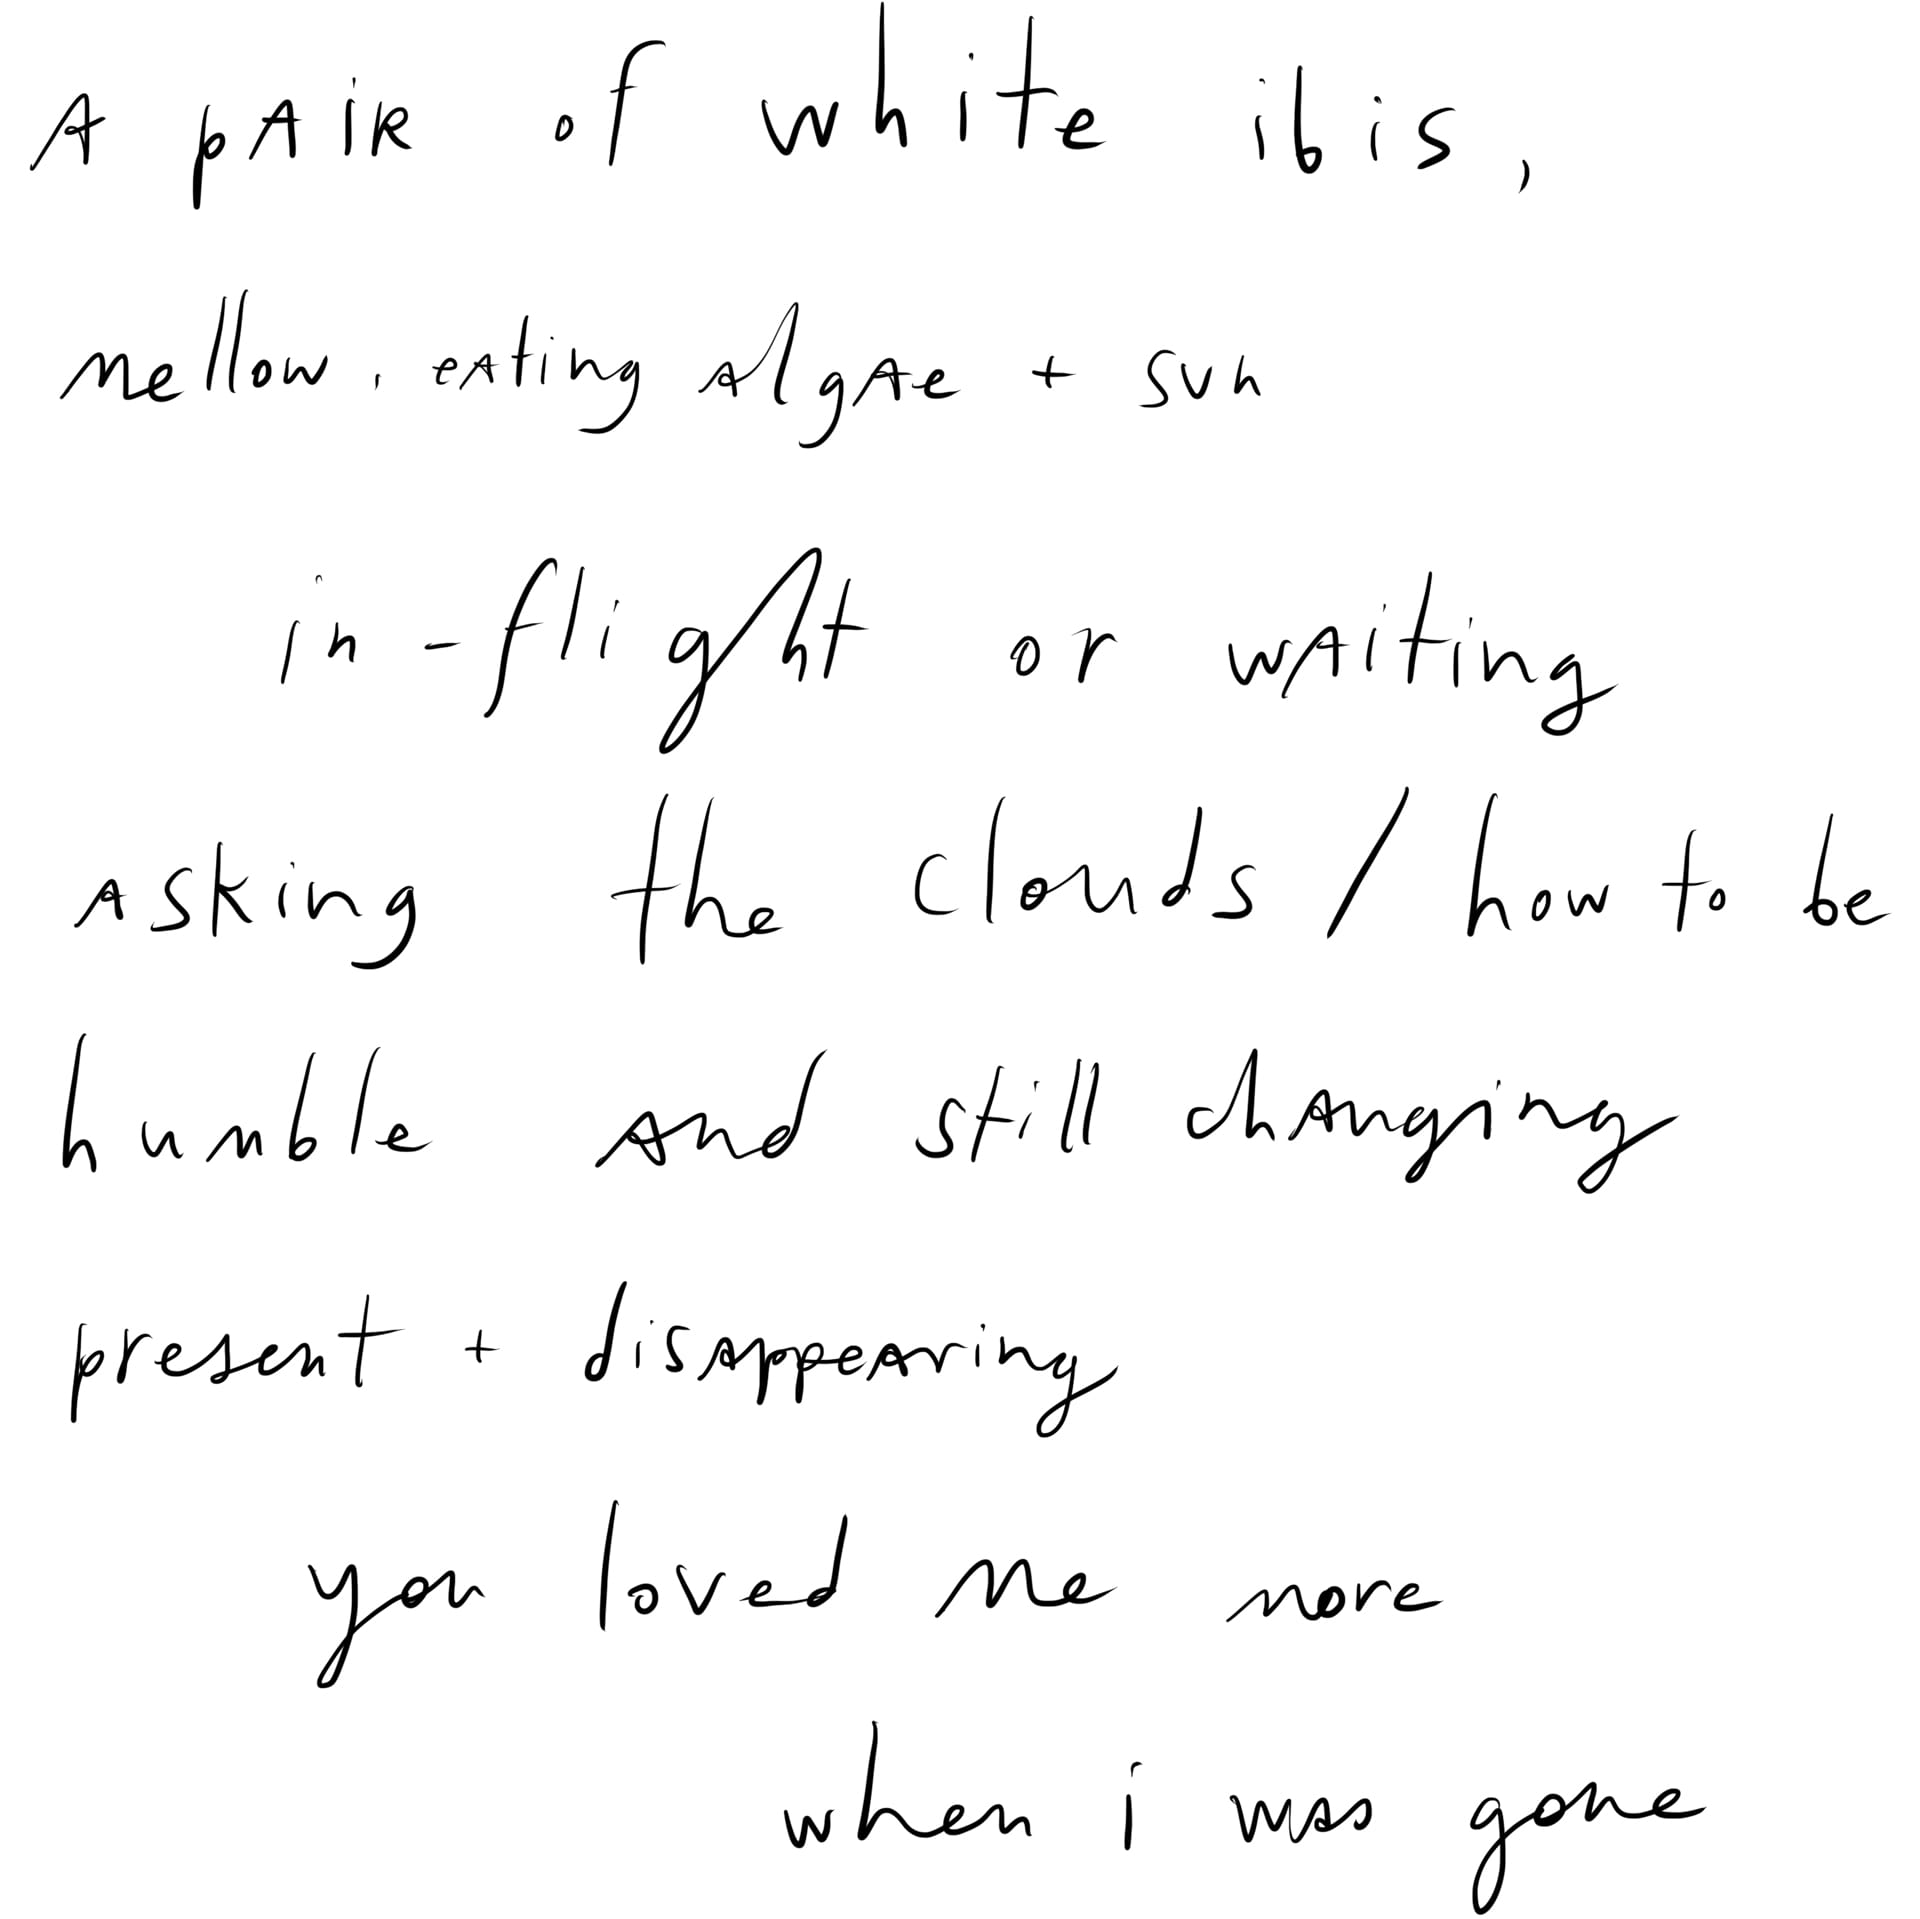 A pair of white ibis,
mellow. eating algae + sun
in-flight or waiting
asking the clouds / how to be
humble and still changing
present + disappearing
you loved me more
when i was gone